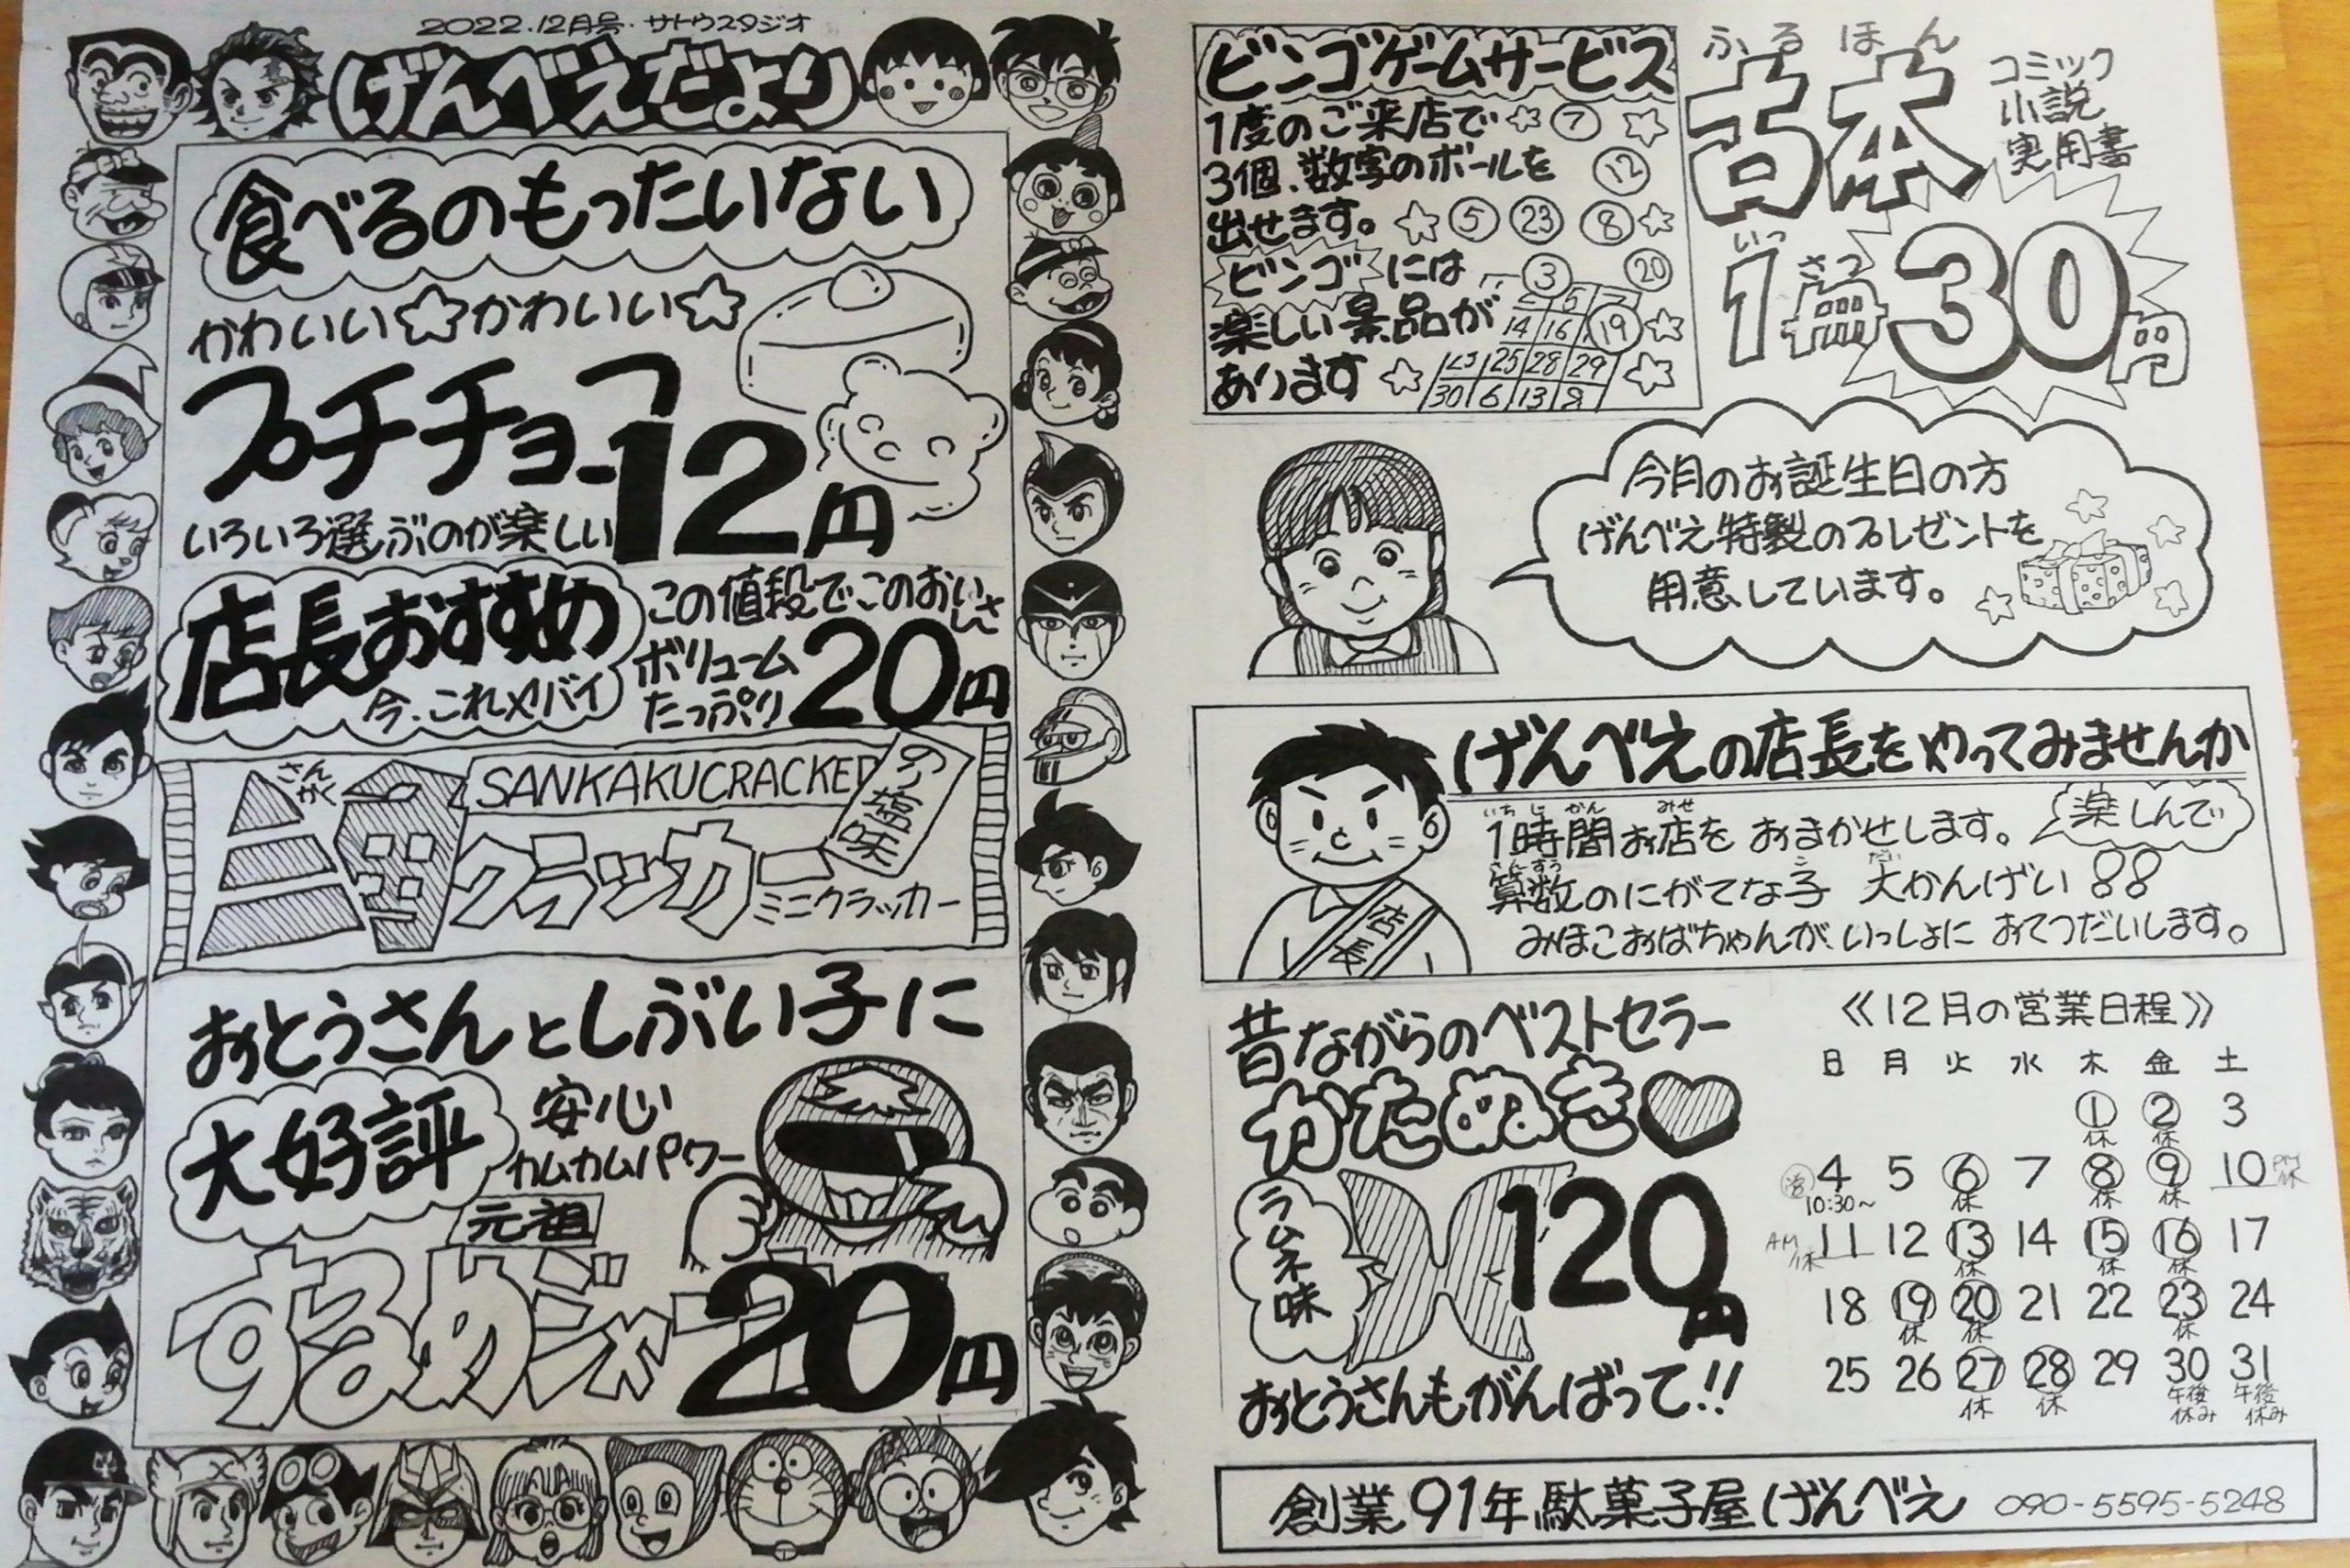 2022.12月号.サトウスタジオ
げんべえだより
食べるのもったいない
かわいい☆かわいい☆
プチチョコ
12円
いろいろ選ぶのが楽しい
店長おすすめ
今、これヤバイ
この値段でこのおいしさ
ボリューム
たっぷり
20円
さんかく
三角
SANKAKUCRACKER
クラッカー
のり塩味
ミニクラッカー
おとうさんとしぶい子に
大好評
安心
カムカムパワー
元祖
するめジャーキー
20円
ビンゴゲームサービス
1度のご来店で
3個、数字のボールを
出せます。
ビンゴには
楽しい景品が
あります
7
12
5 23 8
3 20
14 16 19
25 28 29
30 6 13 8
ふるほん
古本
コミック
小説
実用書
いっさつ
1冊30円
今月のお誕生日の方
げんべえ特製のプレゼントを
用意しています。
げんべえの店長をやってみませんか
いちじかん みせ
1時間お店をおまかせします。
楽しんで
さんすう こ だい
算数のにがてな子 大かんげい!!
みほこおばちゃんが、いっしょに おてつだいします。
店長
昔ながらのベストセラー
かたぬき♥
ラムネ味
120円
おとうさんもがんばって!!
《12月の営業日程》
日 月 火 水 木 金 土
1 2 3
休 休
4 5 6 7 8 9 10 PM休
10:30~ 休 休 休
AM休 11 12 13 14 15 16 17
休 休 休
18 19 20 21 22 23 24
休 休 休
25 26 27 28 29 30 31
休 休 午後休み 午後休み
創業91年駄菓子屋げんべえ 090-5595-5248